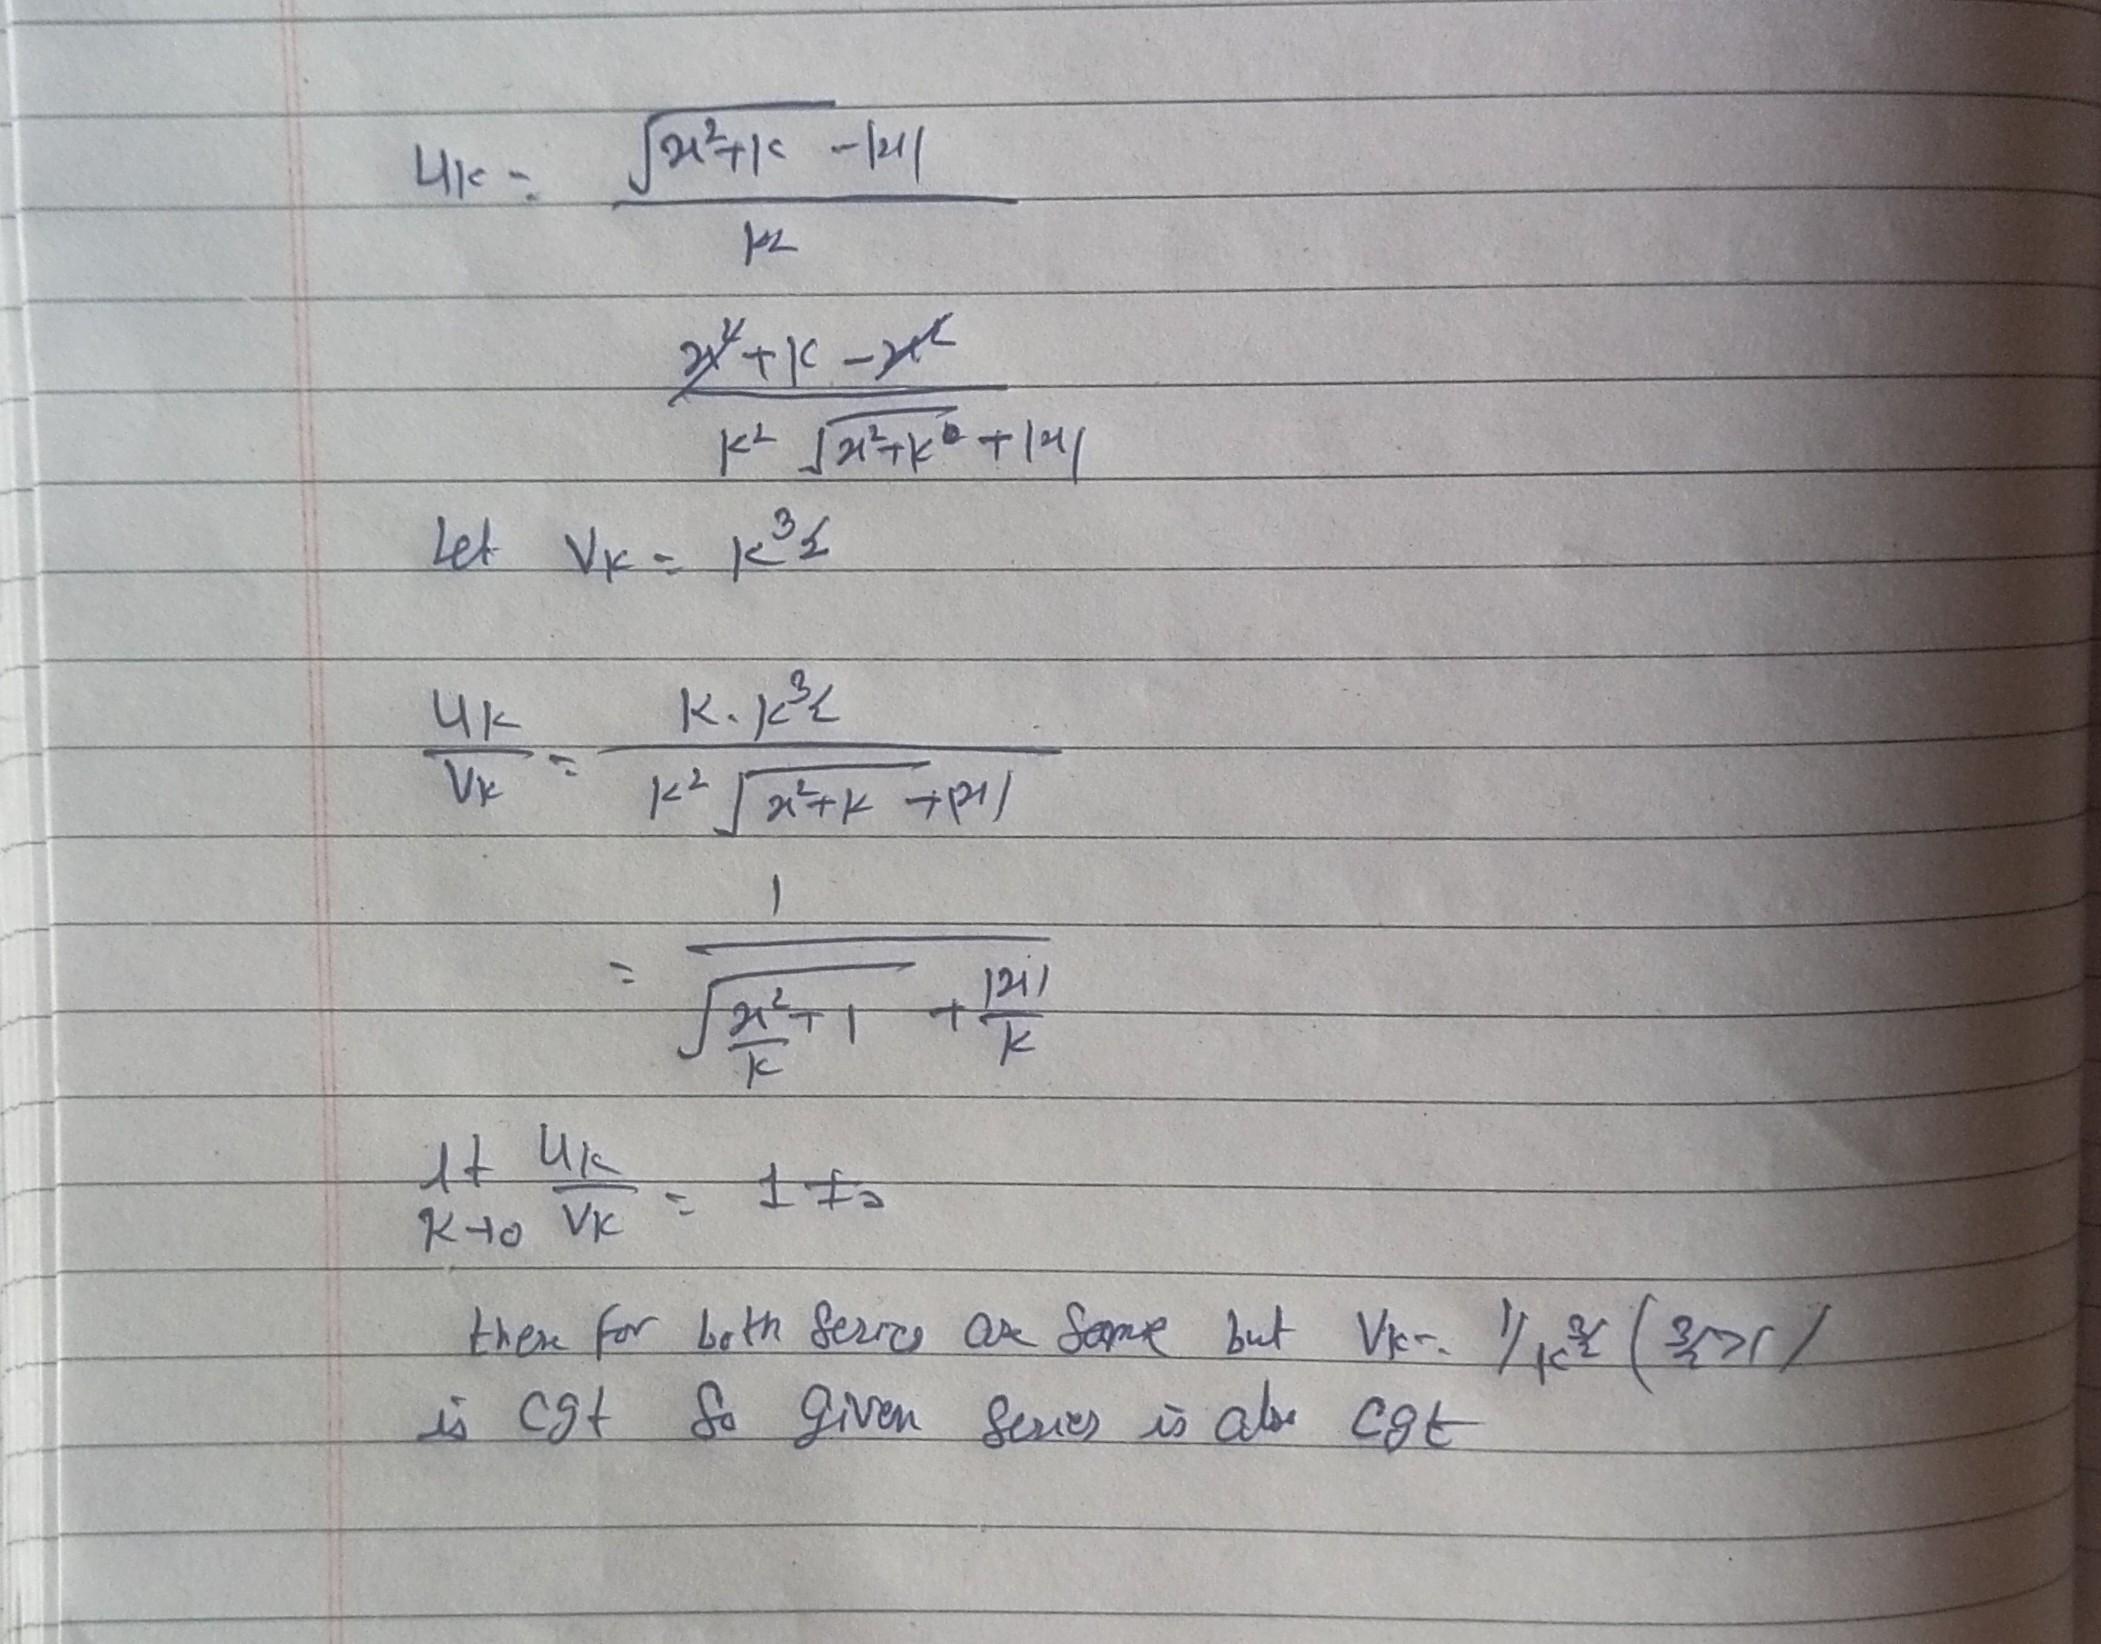 uk = √(x²+k) - |x| / k²
x² + k - x² / k² √(x²+k) + |x|
Let Vk = k^3/2
uk / Vk = k. k^3/2 / k² √(x²+k) + |x|
= 1 / √(x²/k + 1) + |x|/k
lt k→0 uk / Vk = 1 ≠ 0
there for both Series are Same but Vk = 1/k^3/2 (3/2>1)
is cgt So given Series is also cgt